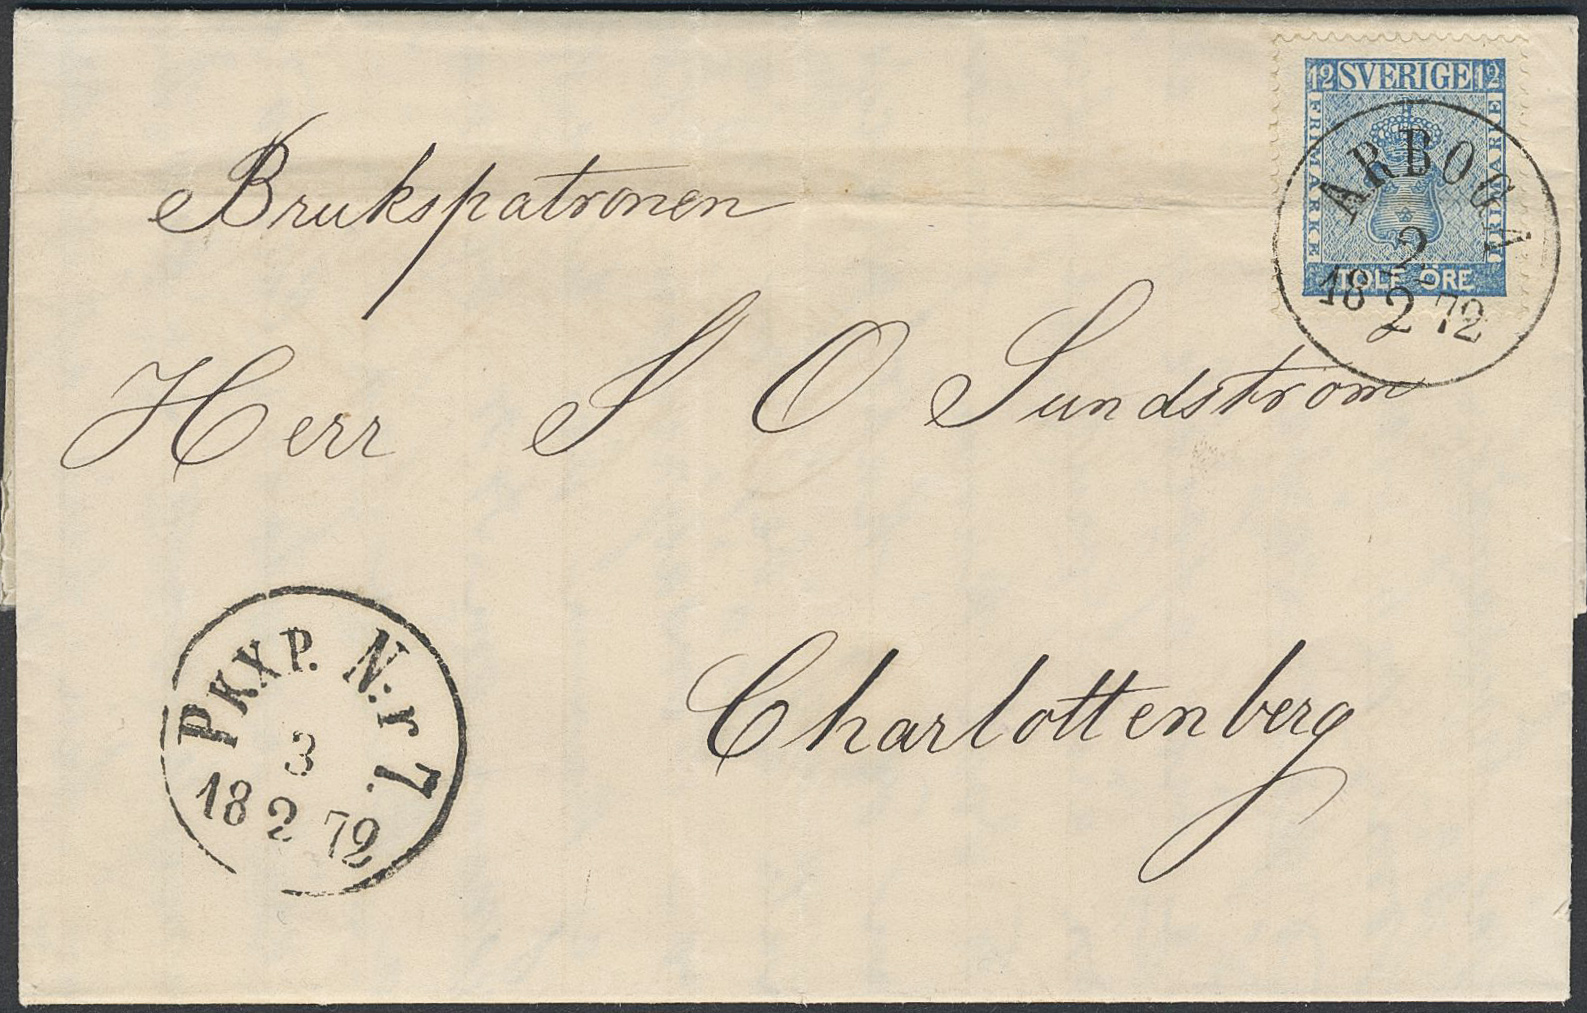 12 SVERIGE 12
FRIMÄRKE
FRIMÄRKE
TOLF ÖRE
ARBOGA
2
18 2 72
Brukspatronen
Herr S O Sundström
Charlottenberg
PKXP. N:r 7.
3
18 2 72